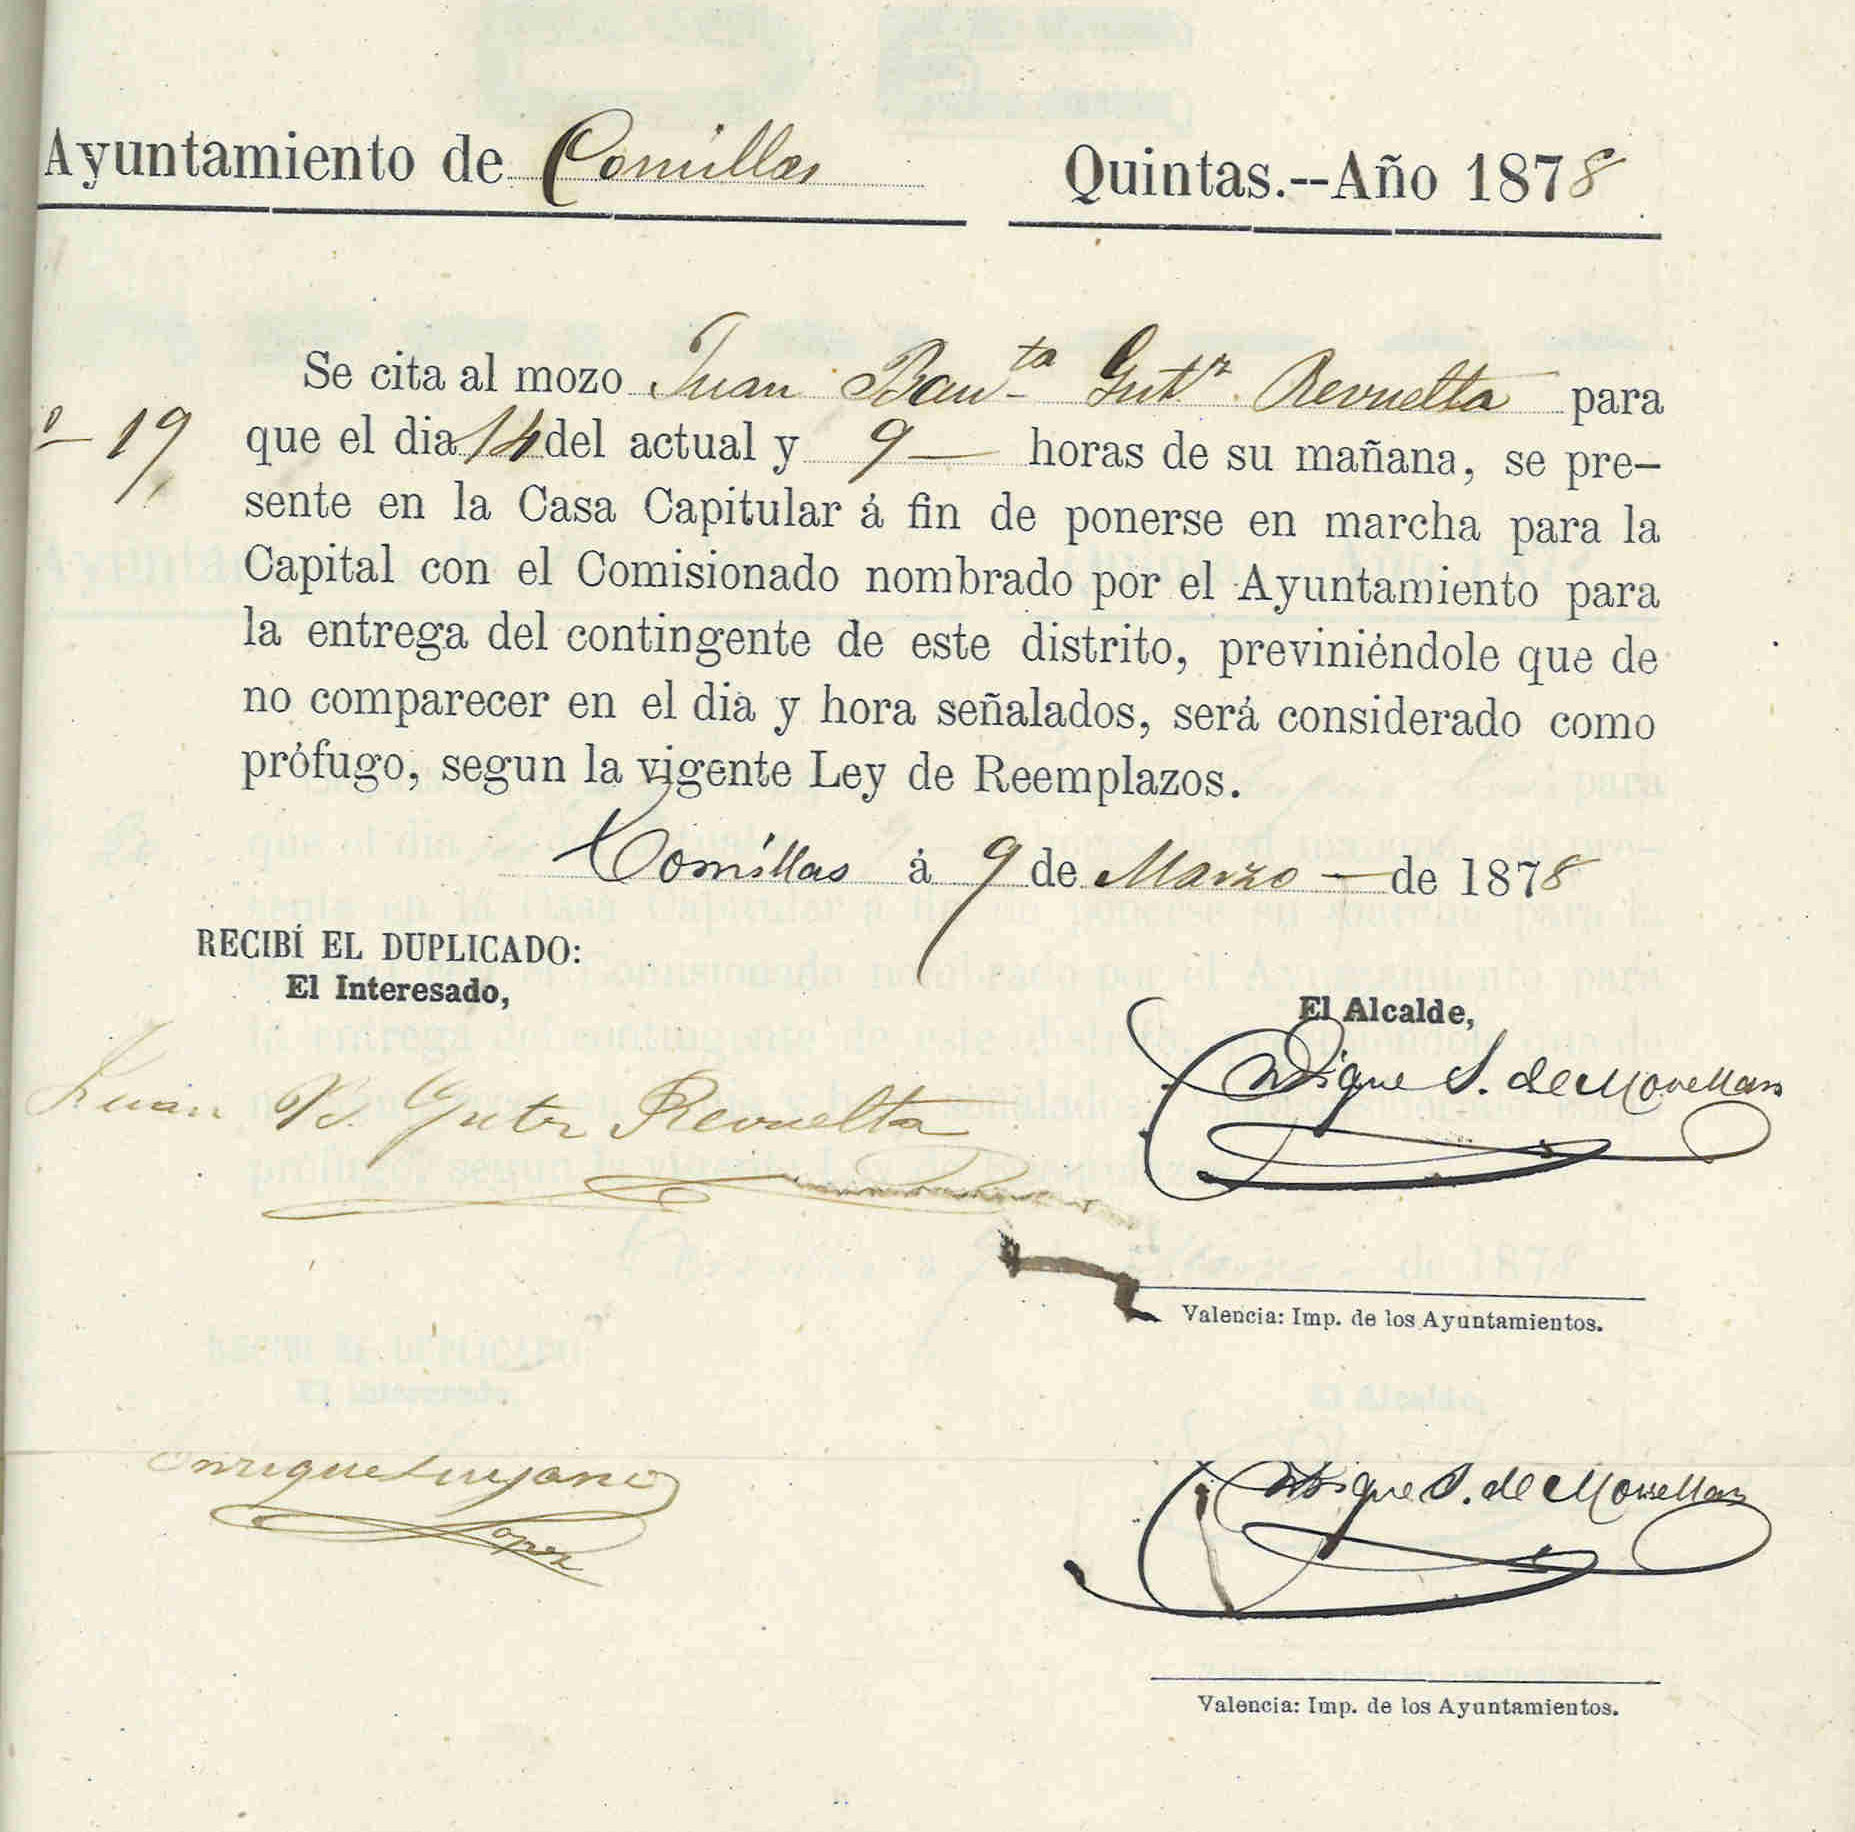 Ayuntamiento de Comillas Quintas.--Año 1878
Se cita al mozo Juan Bau.ta Gut.z Revuelta para
º 19 que el dia 14 del actual y 9 — horas de su mañana, se pre-
sente en la Casa Capitular á fin de ponerse en marcha para la
Capital con el Comisionado nombrado por el Ayuntamiento para
la entrega del contingente de este distrito, previniéndole que de
no comparecer en el dia y hora señalados, será considerado como
prófugo, segun la vigente Ley de Reemplazos.
Comillas á 9 de Marzo — de 1878
RECIBÍ EL DUPLICADO:
El Interesado,
El Alcalde,
Juan B. Gutz Revuelta
Enrique S. de Movellan
Valencia: Imp. de los Ayuntamientos.
Enrique
Lopez
Enrique S. de Movellan
Valencia: Imp. de los Ayuntamientos.